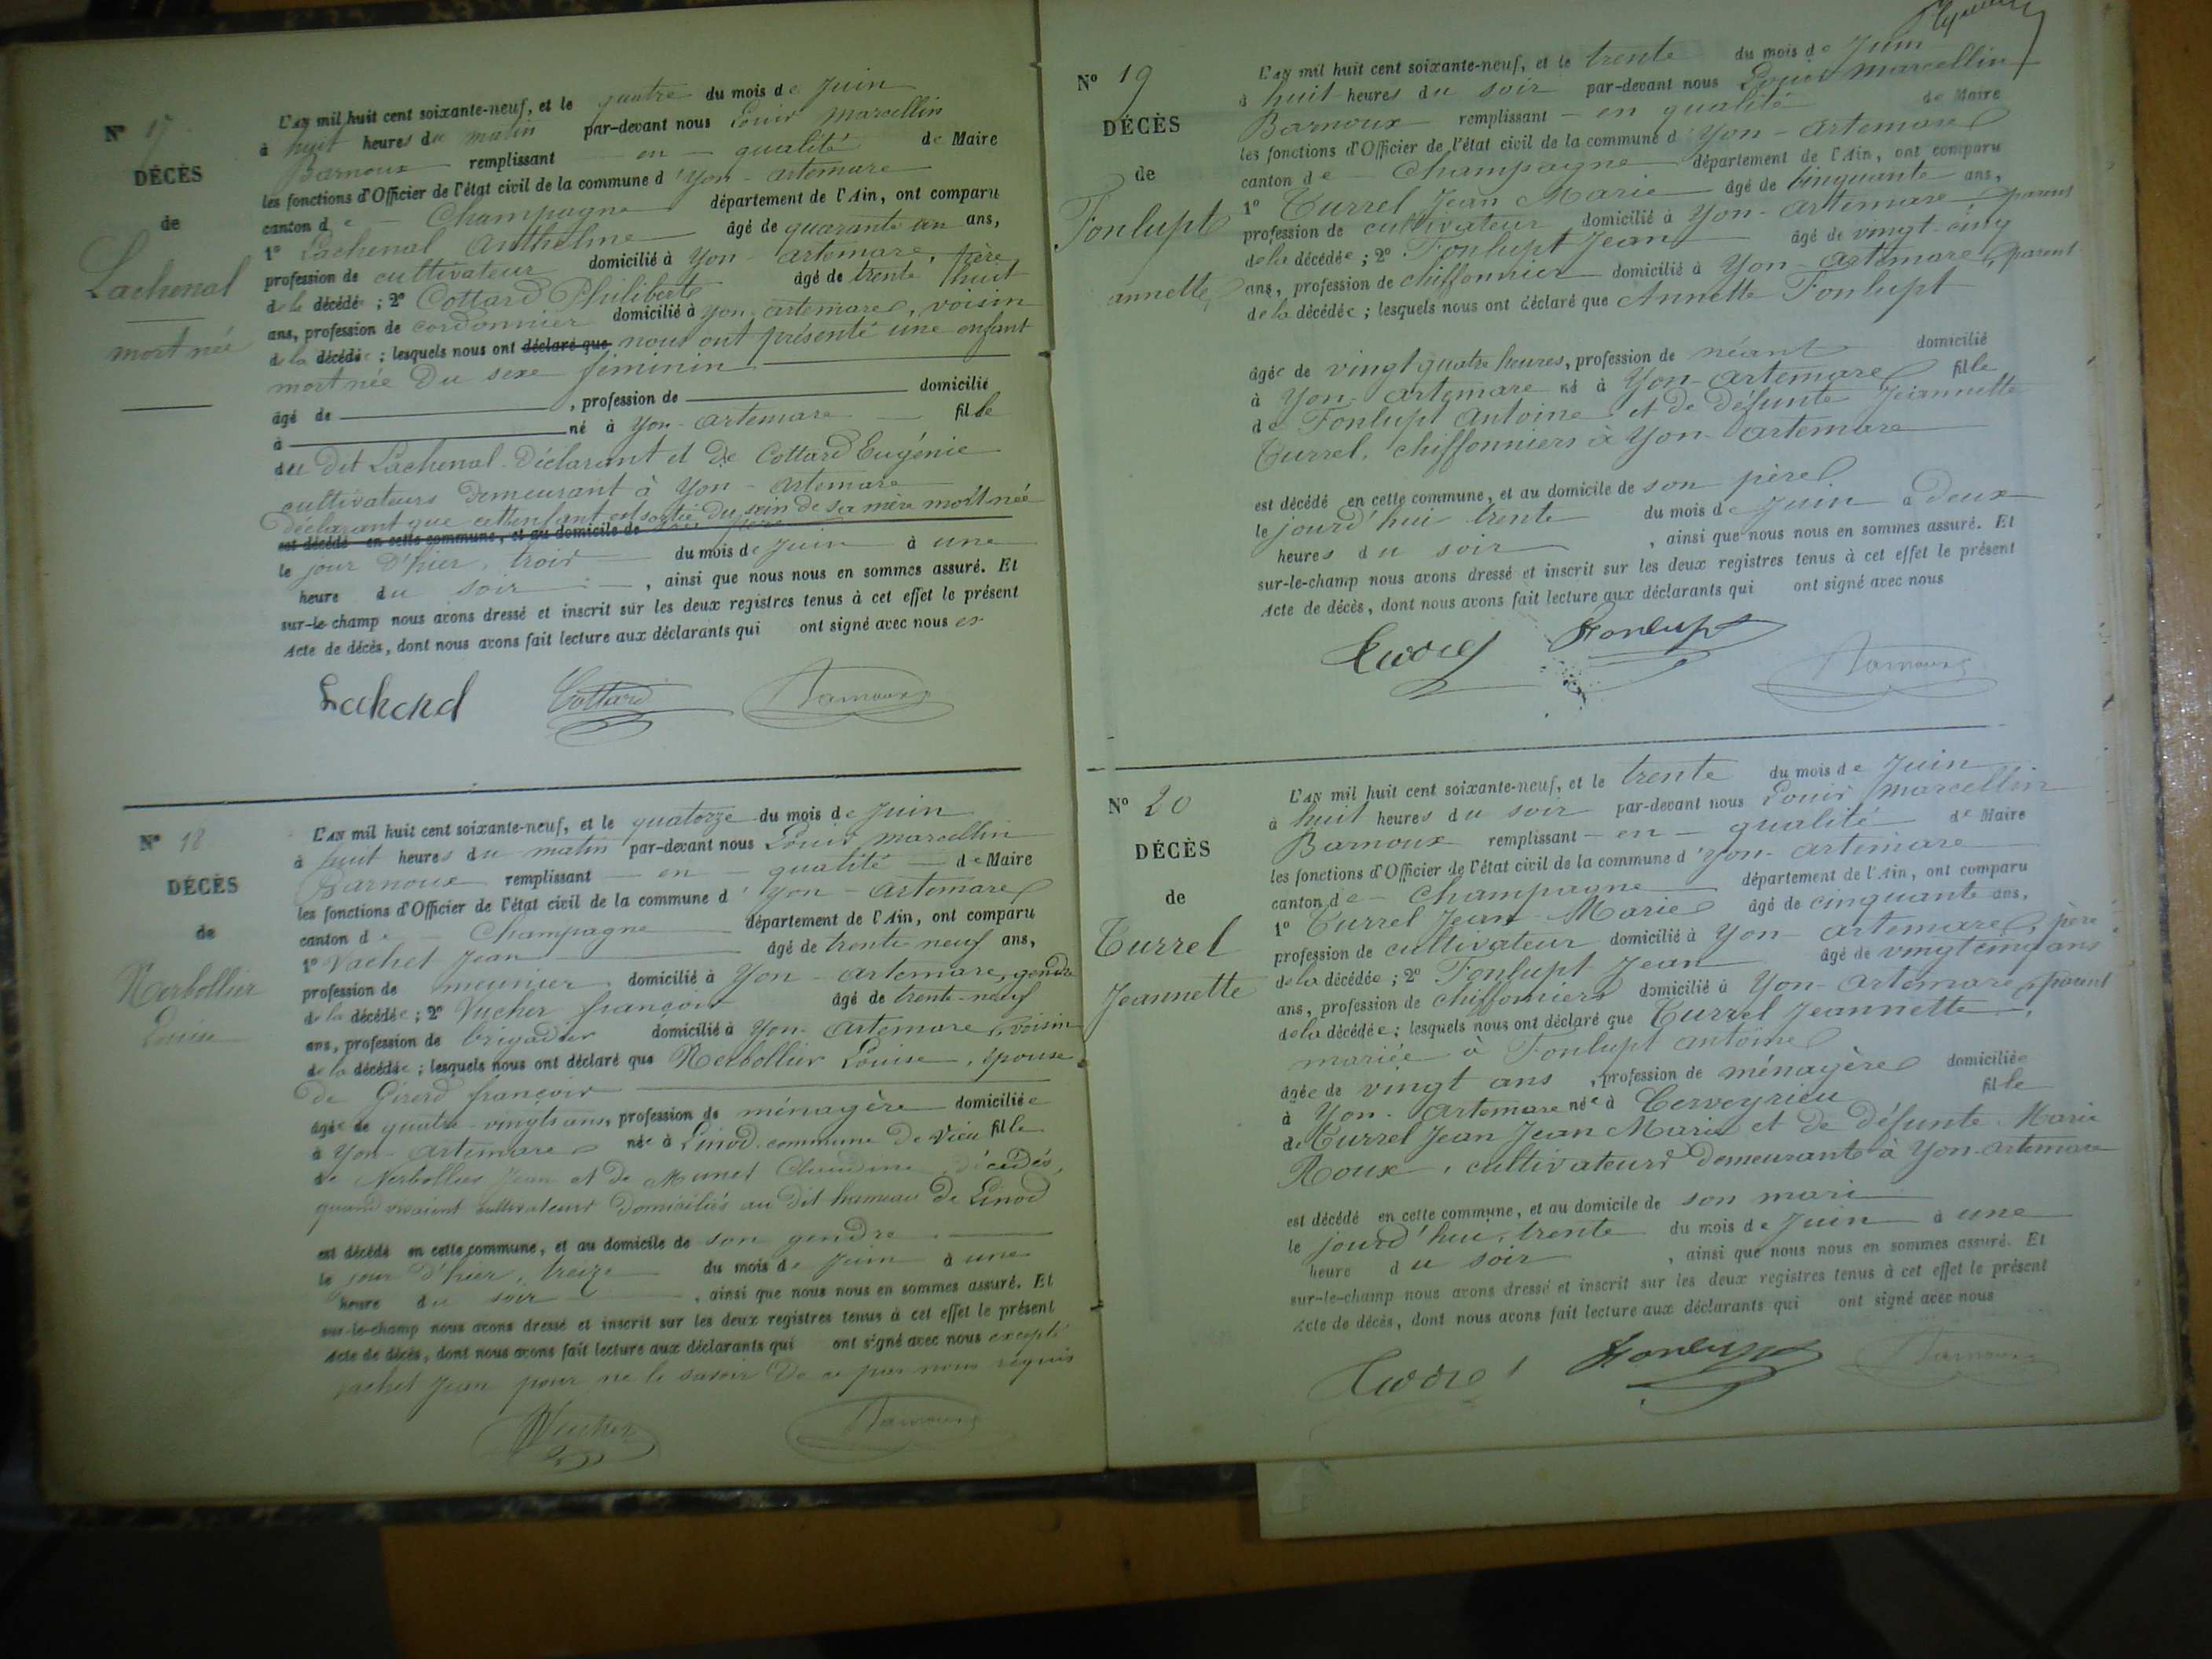 N° 17
DÉCÈS
de
Lachenal
mort née
L'AN mil huit cent soixante-neuf, et le quatre du mois de Juin
à huit heures du matin par-devant nous Louis Marcellin
Barnoux remplissant en qualité de Maire
les fonctions d'Officier de l'état civil de la commune d'Yon-artemare
canton de Champagne département de l'Ain, ont comparu
1° Lachenal Anthelme âgé de quarante un ans,
profession de cultivateur domicilié à Yon-artemare, père
de la décédé ; 2° Cottard Philiberte âgé de trente huit
ans, profession de cordonnier domicilié à yon-artemare, voisin
de la décédée ; lesquels nous ont déclaré que nous ont présenté une enfant
mort née du sexe féminin
âgé de , profession de domicilié
à né à Yon-artemare fille
du dit Lachenal déclarant et de Cottard Eugénie
cultivateurs demeurant à Yon-artemare
déclarant que cette enfant est sortie du sein de sa mère mort née
est décédé en cette commune, et au domicile de son père
le jour d'hier, trois du mois de juin à une
heure du soir , ainsi que nous nous en sommes assuré. Et
sur-le-champ nous avons dressé et inscrit sur les deux registres tenus à cet effet le présent
Acte de décès, dont nous avons fait lecture aux déclarants qui ont signé avec nous
Lachenal Cottard Barnoux
N° 18
DÉCÈS
de
Nerbollier
Louise
L'AN mil huit cent soixante-neuf, et le quatorze du mois de Juin
à huit heures du matin par-devant nous Louis Marcellin
Barnoux remplissant en qualité de Maire
les fonctions d'Officier de l'état civil de la commune d'Yon-Artemare
canton de Champagne département de l'Ain, ont comparu
1° Vachet Jean âgé de trente neuf ans,
profession de meunier domicilié à Yon-artemare, gendre
de la décédée ; 2° Vucher françois âgé de trente-neuf
ans, profession de brigadier domicilié à Yon-Artemare, voisin
de la décédée ; lesquels nous ont déclaré que Nerbollier Louise, épouse
de Girerd françois
âgée de quatre-vingts ans, profession de ménagère domiciliée
à Yon-artemare née à Linod commune de Vieu fille
de Nerbollier Jean et de Munet Claudine, décédés,
quand vivaient cultivateurs domiciliés au dit hameau de Linod
est décédé en cette commune, et au domicile de son gendre
le jour d'hier, treize du mois de Juin à une
heure du soir , ainsi que nous nous en sommes assuré. Et
sur-le-champ nous avons dressé et inscrit sur les deux registres tenus à cet effet le présent
Acte de décès, dont nous avons fait lecture aux déclarants qui ont signé avec nous excepté
vachet Jean pour ne le savoir de ce par nous requis
Vucher Barnoux
N° 19
DÉCÈS
de
Fonlupt
annette
L'AN mil huit cent soixante-neuf, et le trente du mois de Juin
à huit heures du soir par-devant nous Louis Marcellin
Barnoux remplissant en qualité de Maire
les fonctions d'Officier de l'état civil de la commune d'Yon-artemare
canton de Champagne département de l'Ain, ont comparu
1° Turrel Jean Marie âgé de Cinquante ans,
profession de cultivateur domicilié à Yon-artemare, parent
de la décédée ; 2° Fonlupt Jean âgé de vingt-cinq
ans, profession de chiffonnier domicilié à Yon-artemare, parent
de la décédée ; lesquels nous ont déclaré que Annette Fonlupt
âgée de vingt quatre heures, profession de néant domicilié
à Yon-artemare né à Yon-artemare fille
de Fonlupt Antoine et de défunte Jeannette
Turrel, chiffonniers à Yon-artemare
est décédé en cette commune, et au domicile de son père
le jourd'hui trente du mois de Juin à deux
heures du soir , ainsi que nous nous en sommes assuré. Et
sur-le-champ nous avons dressé et inscrit sur les deux registres tenus à cet effet le présent
Acte de décès, dont nous avons fait lecture aux déclarants qui ont signé avec nous
Turrel Fonlupt Barnoux
N° 20
DÉCÈS
de
Turrel
Jeannette
L'AN mil huit cent soixante-neuf, et le trente du mois de Juin
à huit heures du soir par-devant nous Louis Marcellin
Barnoux remplissant en qualité de Maire
les fonctions d'Officier de l'état civil de la commune d'Yon-artemare
canton de Champagne département de l'Ain, ont comparu
1° Turrel Jean-Marie âgé de cinquante ans,
profession de cultivateur domicilié à Yon-artemare, père
de la décédée ; 2° Fonlupt Jean âgé de vingt cinq ans
ans, profession de chiffonniers domicilié à Yon-artemare, parent
de la décédée ; lesquels nous ont déclaré que Turrel Jeannette,
mariée à Fonlupt antoine
âgée de vingt ans , profession de ménagère domiciliée
à Yon-artemare née à Cerveyrieu fille
de Turrel Jean Jean Marie et de défunte Marie
Roux, cultivateurs demeurant à Yon-artemare
est décédé en cette commune, et au domicile de son mari
le jourd'hui, trente du mois de Juin à une
heure du soir , ainsi que nous nous en sommes assuré. Et
sur-le-champ nous avons dressé et inscrit sur les deux registres tenus à cet effet le présent
Acte de décès, dont nous avons fait lecture aux déclarants qui ont signé avec nous
Turrel Fonlupt Barnoux